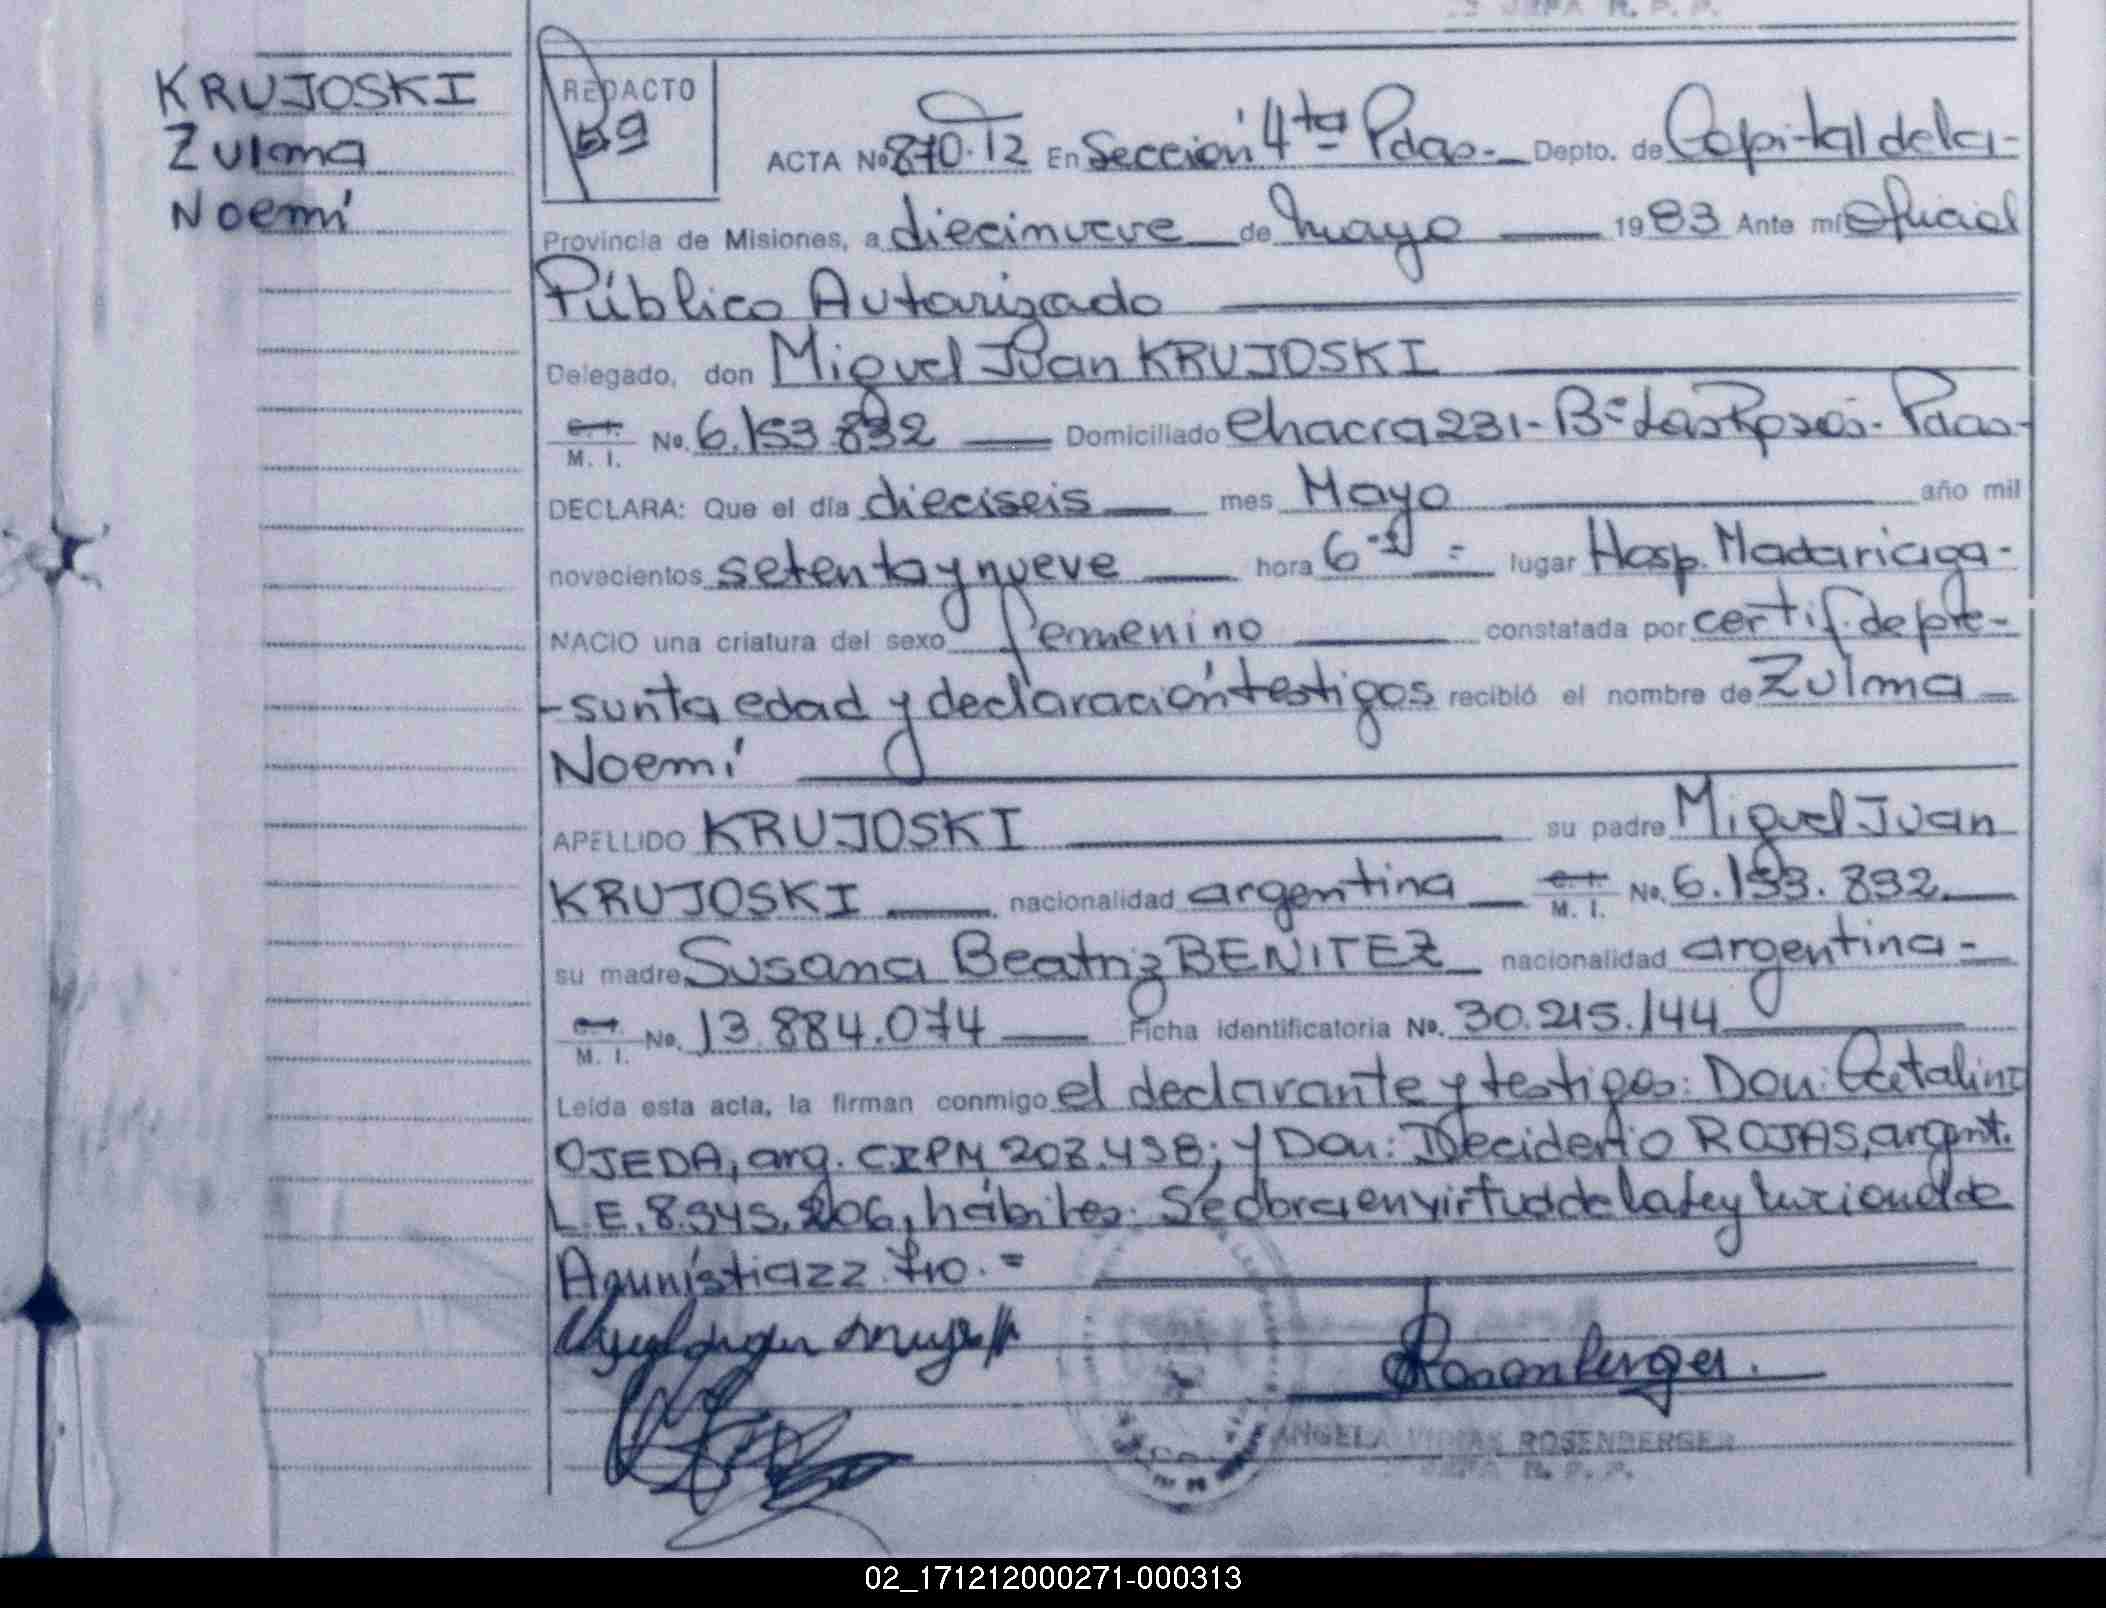 JEFA R. P. P.
KRUJOSKI
Zulma
Noemí
REDACTO
ACTA No 870. T2 En Sección 4ta Pdas.- Depto. de Capital de la-
Provincia de Misiones, a diecinueve de Mayo 1983 Ante mí Oficial
Público Autorizado
Delegado, don Miguel Juan KRUJOSKI
C. I.
M. I. No. 6.153.892 Domiciliado Chacra 231-Bº Las Rosas- Pdas-
DECLARA: Que el día dieciseis mes Mayo año mil
novecientos setenta y nueve hora 6 lugar Hosp. Madariaga-
NACIO una criatura del sexo femenino constatada por certif. de pre-
-sunta edad y declaración testigos recibió el nombre de Zulma
Noemí
APELLIDO KRUJOSKI su padre Miguel Juan
KRUJOSKI nacionalidad argentina C. I.
M. I. No. 6.153.892
su madre Susana Beatriz BENITEZ nacionalidad argentina-
C. I.
M. I. No. 13.884.074 Ficha identificatoria No. 30.215.144
Leída esta acta, la firman conmigo el declarante y testigos: Don: Catalino
OJEDA, arg. CIPM 207.438; y Don: Deciderio ROJAS, argent.
L.E. 8.545.206, hábiles. Se labra en virtud de la Ley Nacional de
Amnistia 22.710.=
Rosenberger.
ANGELA ROSENBERGER
JEFA R. P. P.
02_171212000271-000313